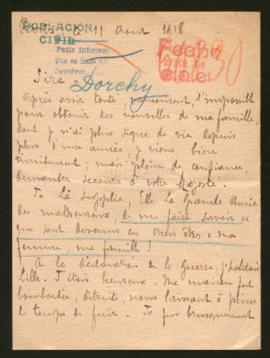 11 Août 1918
POBLACIÓN
CIVIL
Pedir informes
que se hará en
Sire,
Dorchy
Après avoir tenté vainement, l'impossible
pour obtenir des nouvelles de ma famille
dont j'ai plus signe de vie depuis
plus d'une année, je viens bien
timidement; mais plein de confiance,
demander secours à votre Majesté.
Je La supplie, Elle La Grande Amie
des malheureux, de me faire savoir ce
que sont devenus ces chers êtres: ma
femme, ma famille!
A la déclaration de la Guerre, j'habitais
Lille. J'étais heureux. Ma maison fut
bombardée, détruite, nous laissant à peine
le temps de fuir. Je fus brusquement